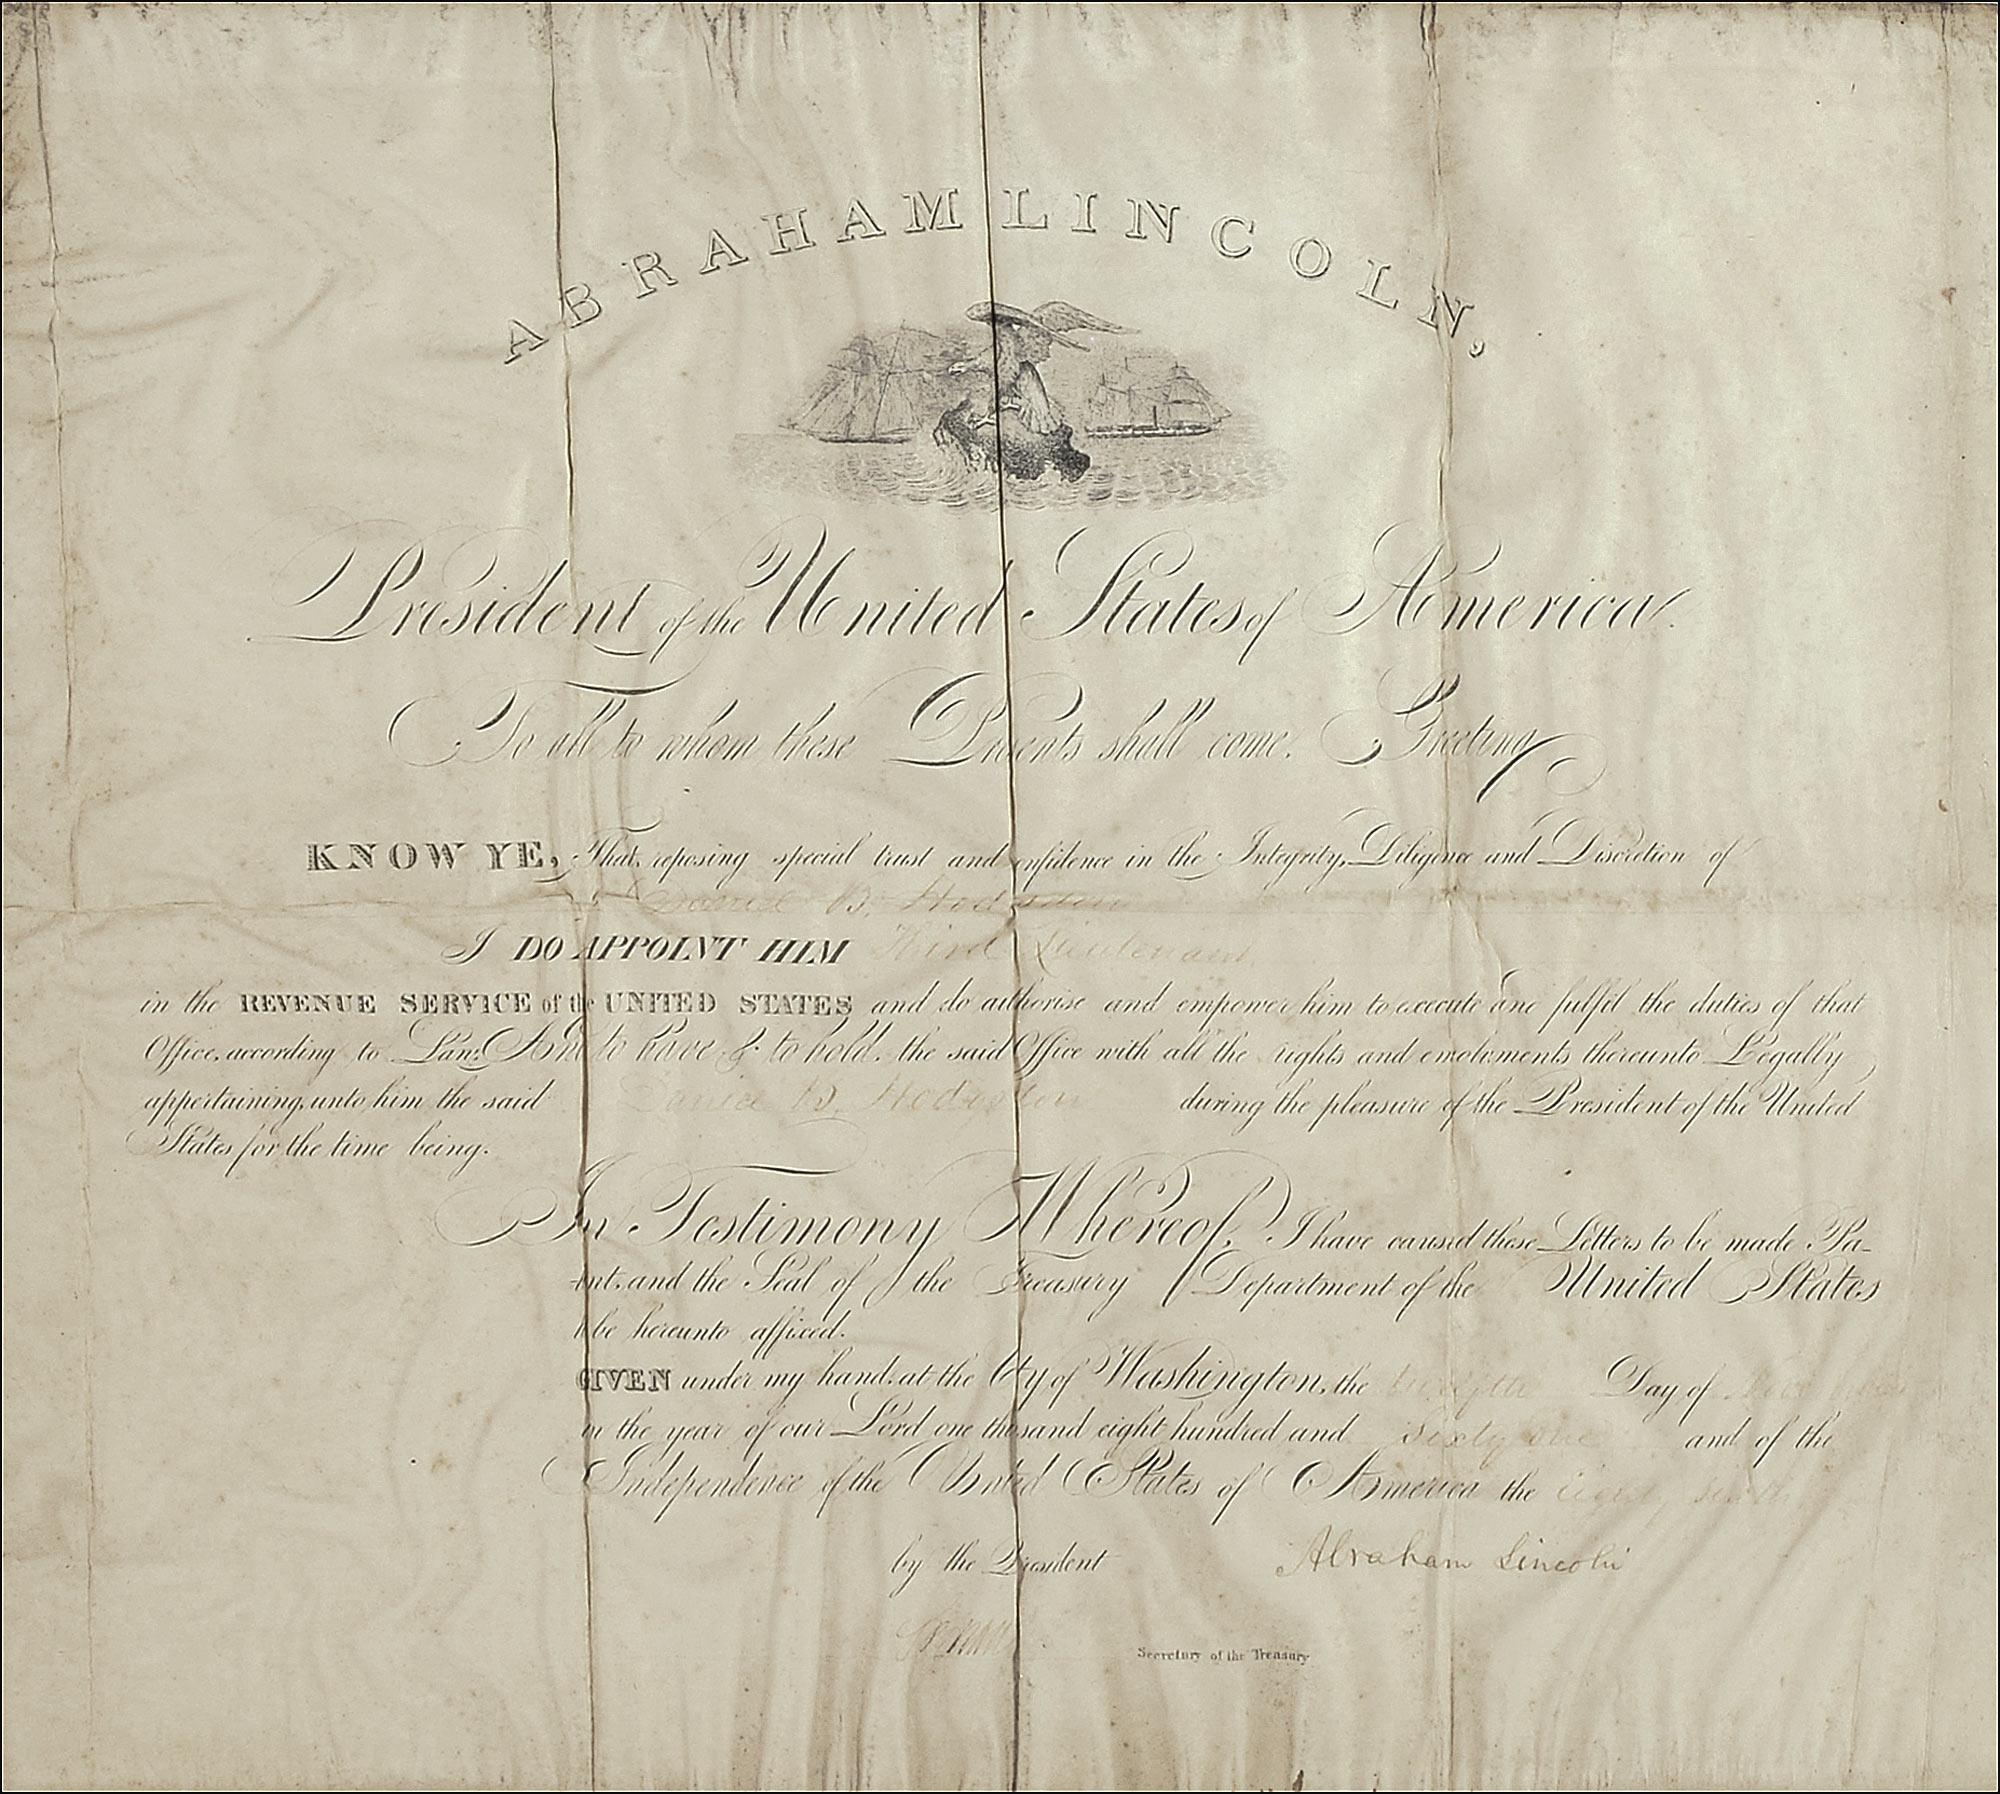 ABRAHAM LINCOLN,
President of the United States of America.
To all to whom these Presents shall come. Greeting
KNOW YE, That reposing special trust and confidence in the Integrity, Diligence and Discretion of
Daniel B. Hodsdon
I DO APPOINT HIM Third Lieutenant
in the REVENUE SERVICE of the UNITED STATES and do authorise and empower him to execute and fulfil the duties of that
Office, according to Law: And to have & to hold, the said Office with all the rights and emoluments thereunto Legally
appertaining, unto him the said Daniel B. Hodsdon during the pleasure of the President of the United
States for the time being.
In Testimony Whereof, I have caused these Letters to be made Pa-
tent, and the Seal of the Treasury Department of the United States
to be hereunto affixed.
GIVEN under my hand, at the City of Washington, the twelfth Day of
in the year of our Lord one thousand eight hundred and sixty one and of the
Independence of the United States of America the eighty sixth
by the President Abraham Lincoln
Secretary of the Treasury